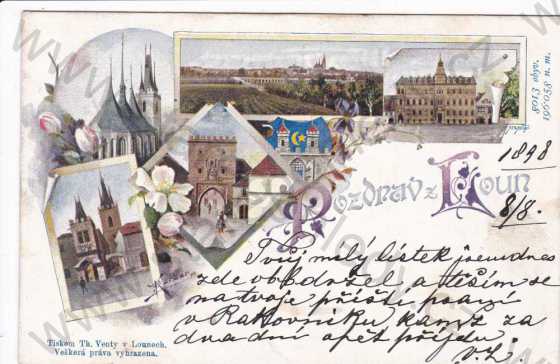 8103 obyv.
190058 n. m.
1898
8/8.
Pozdrav z Loun
Tvůj milý lístek jsem dnes
zde obdržel, a těším se
na tvoje příští psaní
v Rakovníku kamž za
dva dni opět přijdu
Tiskem Th. Venty v Lounech.
Veškerá práva vyhrazena.